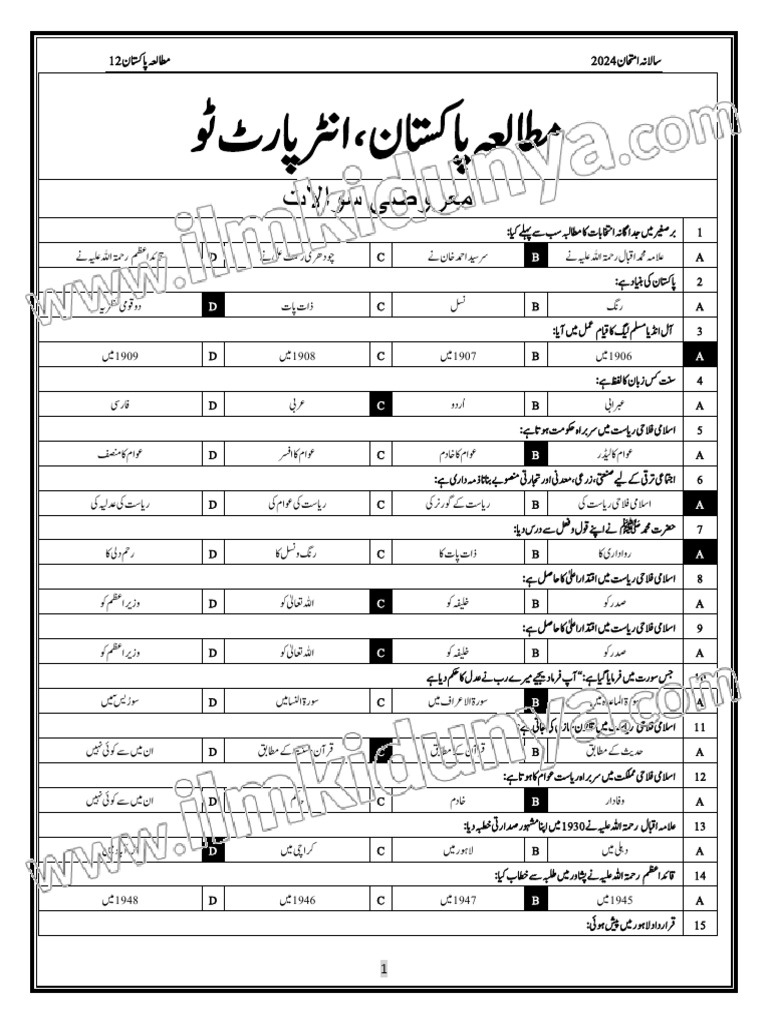 سالانہ امتحان 2024 مطالعہ پاکستان 12
مطالعہ پاکستان، انٹر پارٹ ٹو
معروضی سوالات
1 برصغیر میں جداگانہ انتخابات کا مطالبہ سب سے پہلے کیا:
A علامہ محمد اقبال رحمۃ اللہ علیہ نے B سر سید احمد خان نے C چودھری رحمت علی نے D قائد اعظم رحمۃ اللہ علیہ نے
2 پاکستان کی بنیاد ہے:
A رنگ B نسل C ذات پات D دو قومی نظریہ
3 آل انڈیا مسلم لیگ کا قیام عمل میں آیا:
A 1906 میں B 1907 میں C 1908 میں D 1909 میں
4 سنت کس زبان کا لفظ ہے:
A عبرانی B اُردو C عربی D فارسی
5 اسلامی فلاحی ریاست میں سربراہ حکومت ہوتا ہے:
A عوام کا لیڈر B عوام کا خادم C عوام کا افسر D عوام کا منصف
6 اجتماعی ترقی کے لیے صنعتی، زرعی، معدنی اور تجارتی منصوبے بنانا ذمہ داری ہے:
A اسلامی فلاحی ریاست کی B ریاست کے گورنر کی C ریاست کی عوام کی D ریاست کی عدلیہ کی
7 حضرت محمد ﷺ نے اپنے قول و فعل سے درس دیا:
A رواداری کا B ذات پات کا C رنگ و نسل کا D رحم دلی کا
8 اسلامی فلاحی ریاست میں اقتدار اعلیٰ کا حاصل ہے:
A صدر کو B خلیفہ کو C اللہ تعالیٰ کو D وزیر اعظم کو
9 اسلامی فلاحی ریاست میں اقتدار اعلیٰ کا حاصل ہے:
A صدر کو B خلیفہ کو C اللہ تعالیٰ کو D وزیر اعظم کو
10 جس سورت میں فرمایا گیا ہے: “آپ فرما دیجیے میرے رب نے عدل کا حکم دیا ہے
A سورۃ المائدہ میں B سورۃ الاعراف میں C سورۃ النسا میں D سورۃ یٰس میں
11 اسلامی فلاحی ریاست میں قانون سازی کی جاتی ہے:
A حدیث کے مطابق B قرآن کے مطابق C قرآن و سنت کے مطابق D ان میں سے کوئی نہیں
12 اسلامی فلاحی مملکت میں سربراہ ریاست عوام کا ہوتا ہے:
A وفادار B خادم C D ان میں سے کوئی نہیں
13 علامہ اقبال رحمۃ اللہ علیہ نے 1930 میں اپنا مشہور صدارتی خطبہ دیا:
A دہلی میں B لاہور میں C کراچی میں D
14 قائد اعظم رحمۃ اللہ علیہ نے پشاور میں طلبہ سے خطاب کیا:
A 1945 میں B 1947 میں C 1946 میں D 1948 میں
15 قرارداد لاہور میں پیش ہوئی:
1
www.ilmkidunya.com
www.ilmkidunya.com